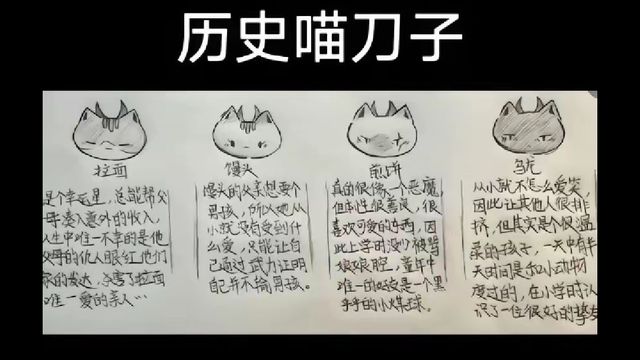 历史喵刀子
拉面
是个幸运星，总能帮父
母凑入意外的收入，
人生中唯一不幸的是他
父母的仇人眼红他们
家的发达，杀害了拉面
唯一爱的亲人…
馒头
馒头的父亲想要个
男孩，所以她从
小就没有受到什
么爱，只能让自
己通过武力证明
自己并不输男孩。
煎饼
真的很像一个恶魔，
但本性很善良，很
喜欢可爱的东西，因
此上学时没少被骂
娘娘腔，童年中
唯一的好友是一个黑
乎乎的小煤球。
乌龙
从小就不怎么爱笑，
因此让其他人很排
挤，但其实是个很温
柔的孩子，一天中有半
天时间是和小动物
度过的，在小学时认
识了一位很好的挚友